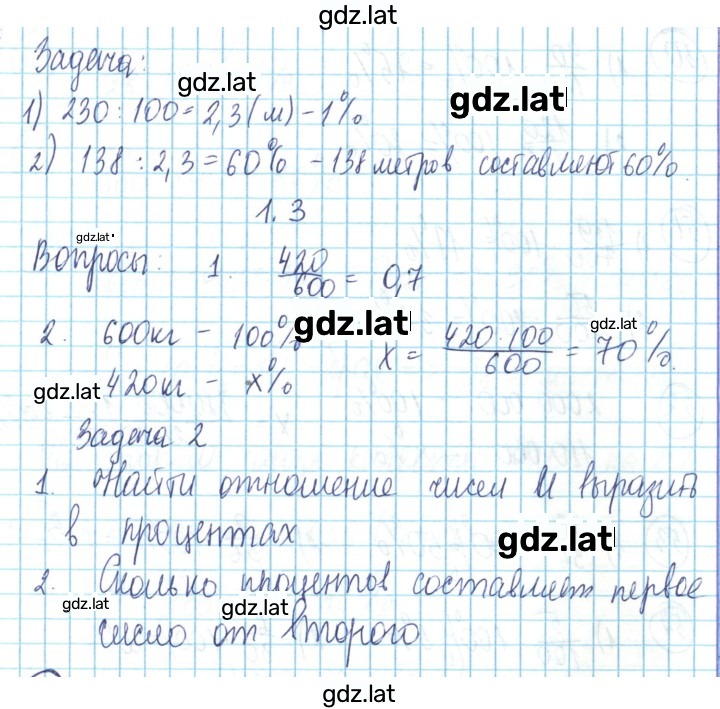 gdz.lat
Задача:
gdz.lat
1) 230 : 100 = 2,3 (м) - 1%
gdz.lat
2) 138 : 2,3 = 60% - 138 метров составляют 60%.
1.3
gdz.lat
Вопросы: 1. 420/600 = 0,7
2. 600кг - 100% x = 420·100/600 = 70%.
gdz.lat gdz.lat
gdz.lat 420кг - x%
Задача 2
1. Найти отношение чисел и выразить
в процентах
gdz.lat
2. Сколько процентов составляет первое
gdz.lat gdz.lat
число от второго
gdz.lat